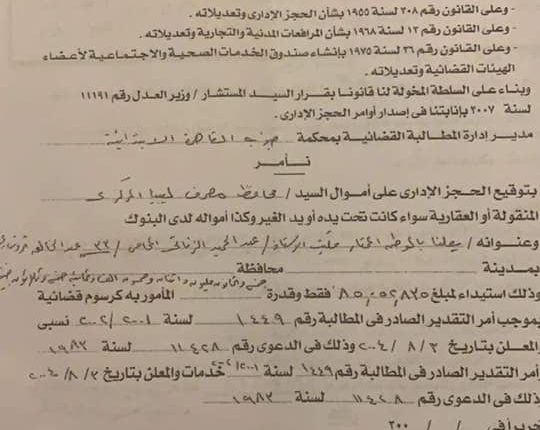 - وعلى القانون رقم ٣٠٨ لسنة ١٩٥٥ بشأن الحجز الإدارى وتعديلاته .
- وعلى القانون رقم ١٣ لسنة ١٩٦٨ بشأن المرافعات المدنية والتجارية وتعديلاته .
- وعلى القانون رقم ٣٦ لسنة ١٩٧٥ بإنشاء صندوق الخدمات الصحية والاجتماعية لأعضاء
الهيئات القضائية وتعديلاته .
وبناء على السلطة المخولة لنا قانونا بقرار السيد المستشار / وزير العدل رقم ١١١٩١
لسنة ٢٠٠٧ بإنابتنا فى إصدار أوامر الحجز الإدارى .
مدير إدارة المطالبة القضائية بمحكمة جنوب القاهرة الابتدائية
نأمر
بتوقيع الحجز الإدارى على أموال السيد / محافظ مصرف ليبيا المركزى
المنقولة أو العقارية سواء كانت تحت يده أو يد الغير وكذا أمواله لدى البنوك
وعنوانه / يعلن بالموطن المختار مكتب الاستاذ / عبد الحميد المحامى / ٣٣ عبد الخالق ثروت
بمدينة محافظة
وذلك استيداء لمبلغ ٨٥٠٥٢٨٣٥ فقط وقدرة المأمور به كرسوم قضائية
بموجب أمر التقدير الصادر فى المطالبة رقم ١٤٤٩ لسنة ٢٠٠١ / ٢٠٠٢ نسبى
والمعلن بتاريخ ٣ / ٨ / ٢٠٠٤ وذلك فى الدعوى رقم ١١٤٢٨ لسنة ١٩٨٣
وأمر التقدير الصادر فى المطالبة رقم ١٤٤٩ لسنة ٢٠٠١ / ٢ خدمات والمعلن بتاريخ ٣ / ٨ / ٢٠٠٤
وذلك فى الدعوى رقم ١١٤٢٨ لسنة ١٩٨٣
تحريراً فى / / ٢٠٠